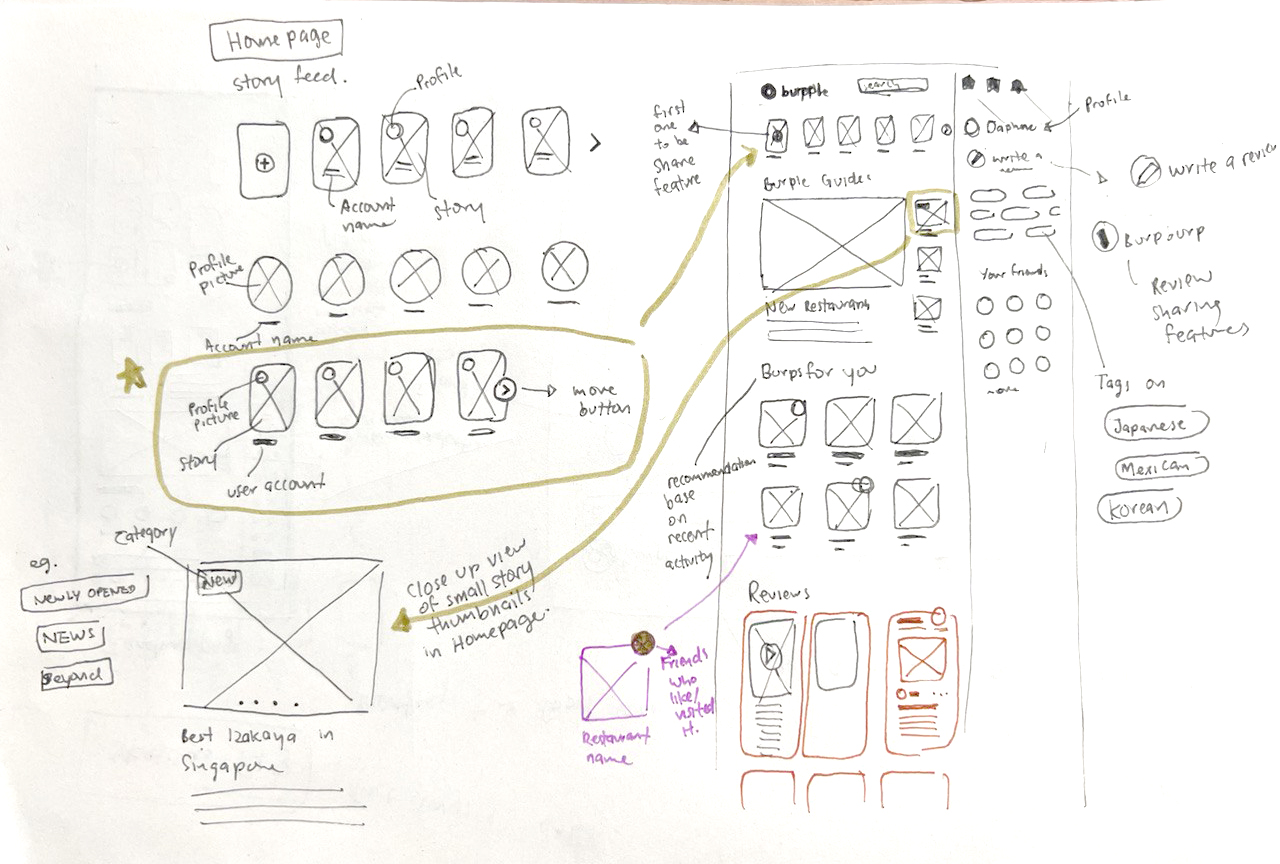 Homepage
story feed.
Profile
Account
name
story
Profile
picture
Account name
Profile
picture
story
user account
move
button
Category
eg.
NEWLY OPENED
NEWS
Beyond
NEW
Best Izakaya in
Singapore
Close up view
of small story
thumbnails
in Homepage.
Restaurant
name
Friends
who
like/
visited
it.
first
one
to be
share
feature
burpple
search
Burple Guides
New Restaurants
Burps for you
recommendation
base
on
recent
activity
Reviews
Daphne
write a
review
Your friends
more
Profile
write a review
Burpburp
Review
sharing
features
Tags on
Japanese
Mexican
Korean